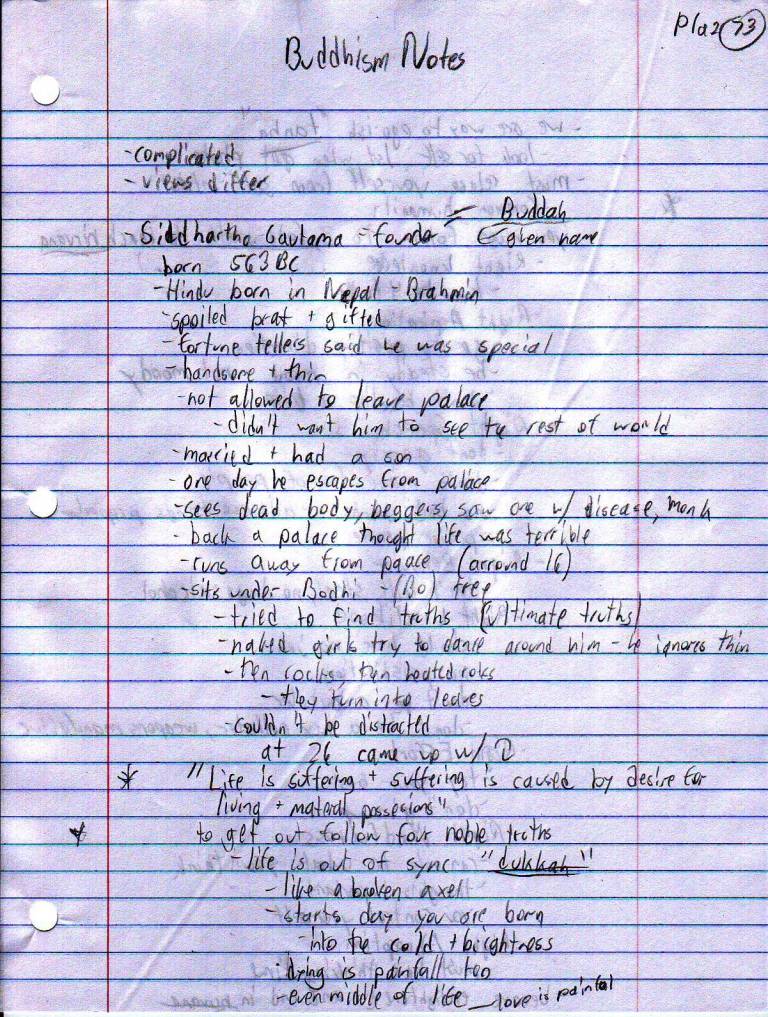 Pla2 93
Buddhism Notes
-complicated
- views differ
Buddah
- Siddhartha Gautama - founder given name
born 563 BC
-Hindu born in Nepal - Brahmin
-spoiled brat + gifted
-fortune tellers said he was special
-handsore + thin
-not allowed to leave palace
-didn't want him to see the rest of world
-married + had a son
-one day he escapes from palace
-sees dead body, beggers, saw one w/ disease, monk
- back a palace thought life was terrible
-runs away from paace (arround 16)
-sits under Bodhi - (Bo) tree
-tried to find truths (ultimate truths)
-naked girls try to dance around him - he ignores thin
- then heated roks
-they turn into leaves
-couldn't be distracted
at 26 came up w/
* "Life is suffering + suffering is caused by desire for
living + material possecions"
* to get out follow four noble truths
-life is out of sync "dukkah"
-like a broken axell
-starts day you are born
-into the cold + brightness
-dying is painfall too
-even middle of life - love is painful